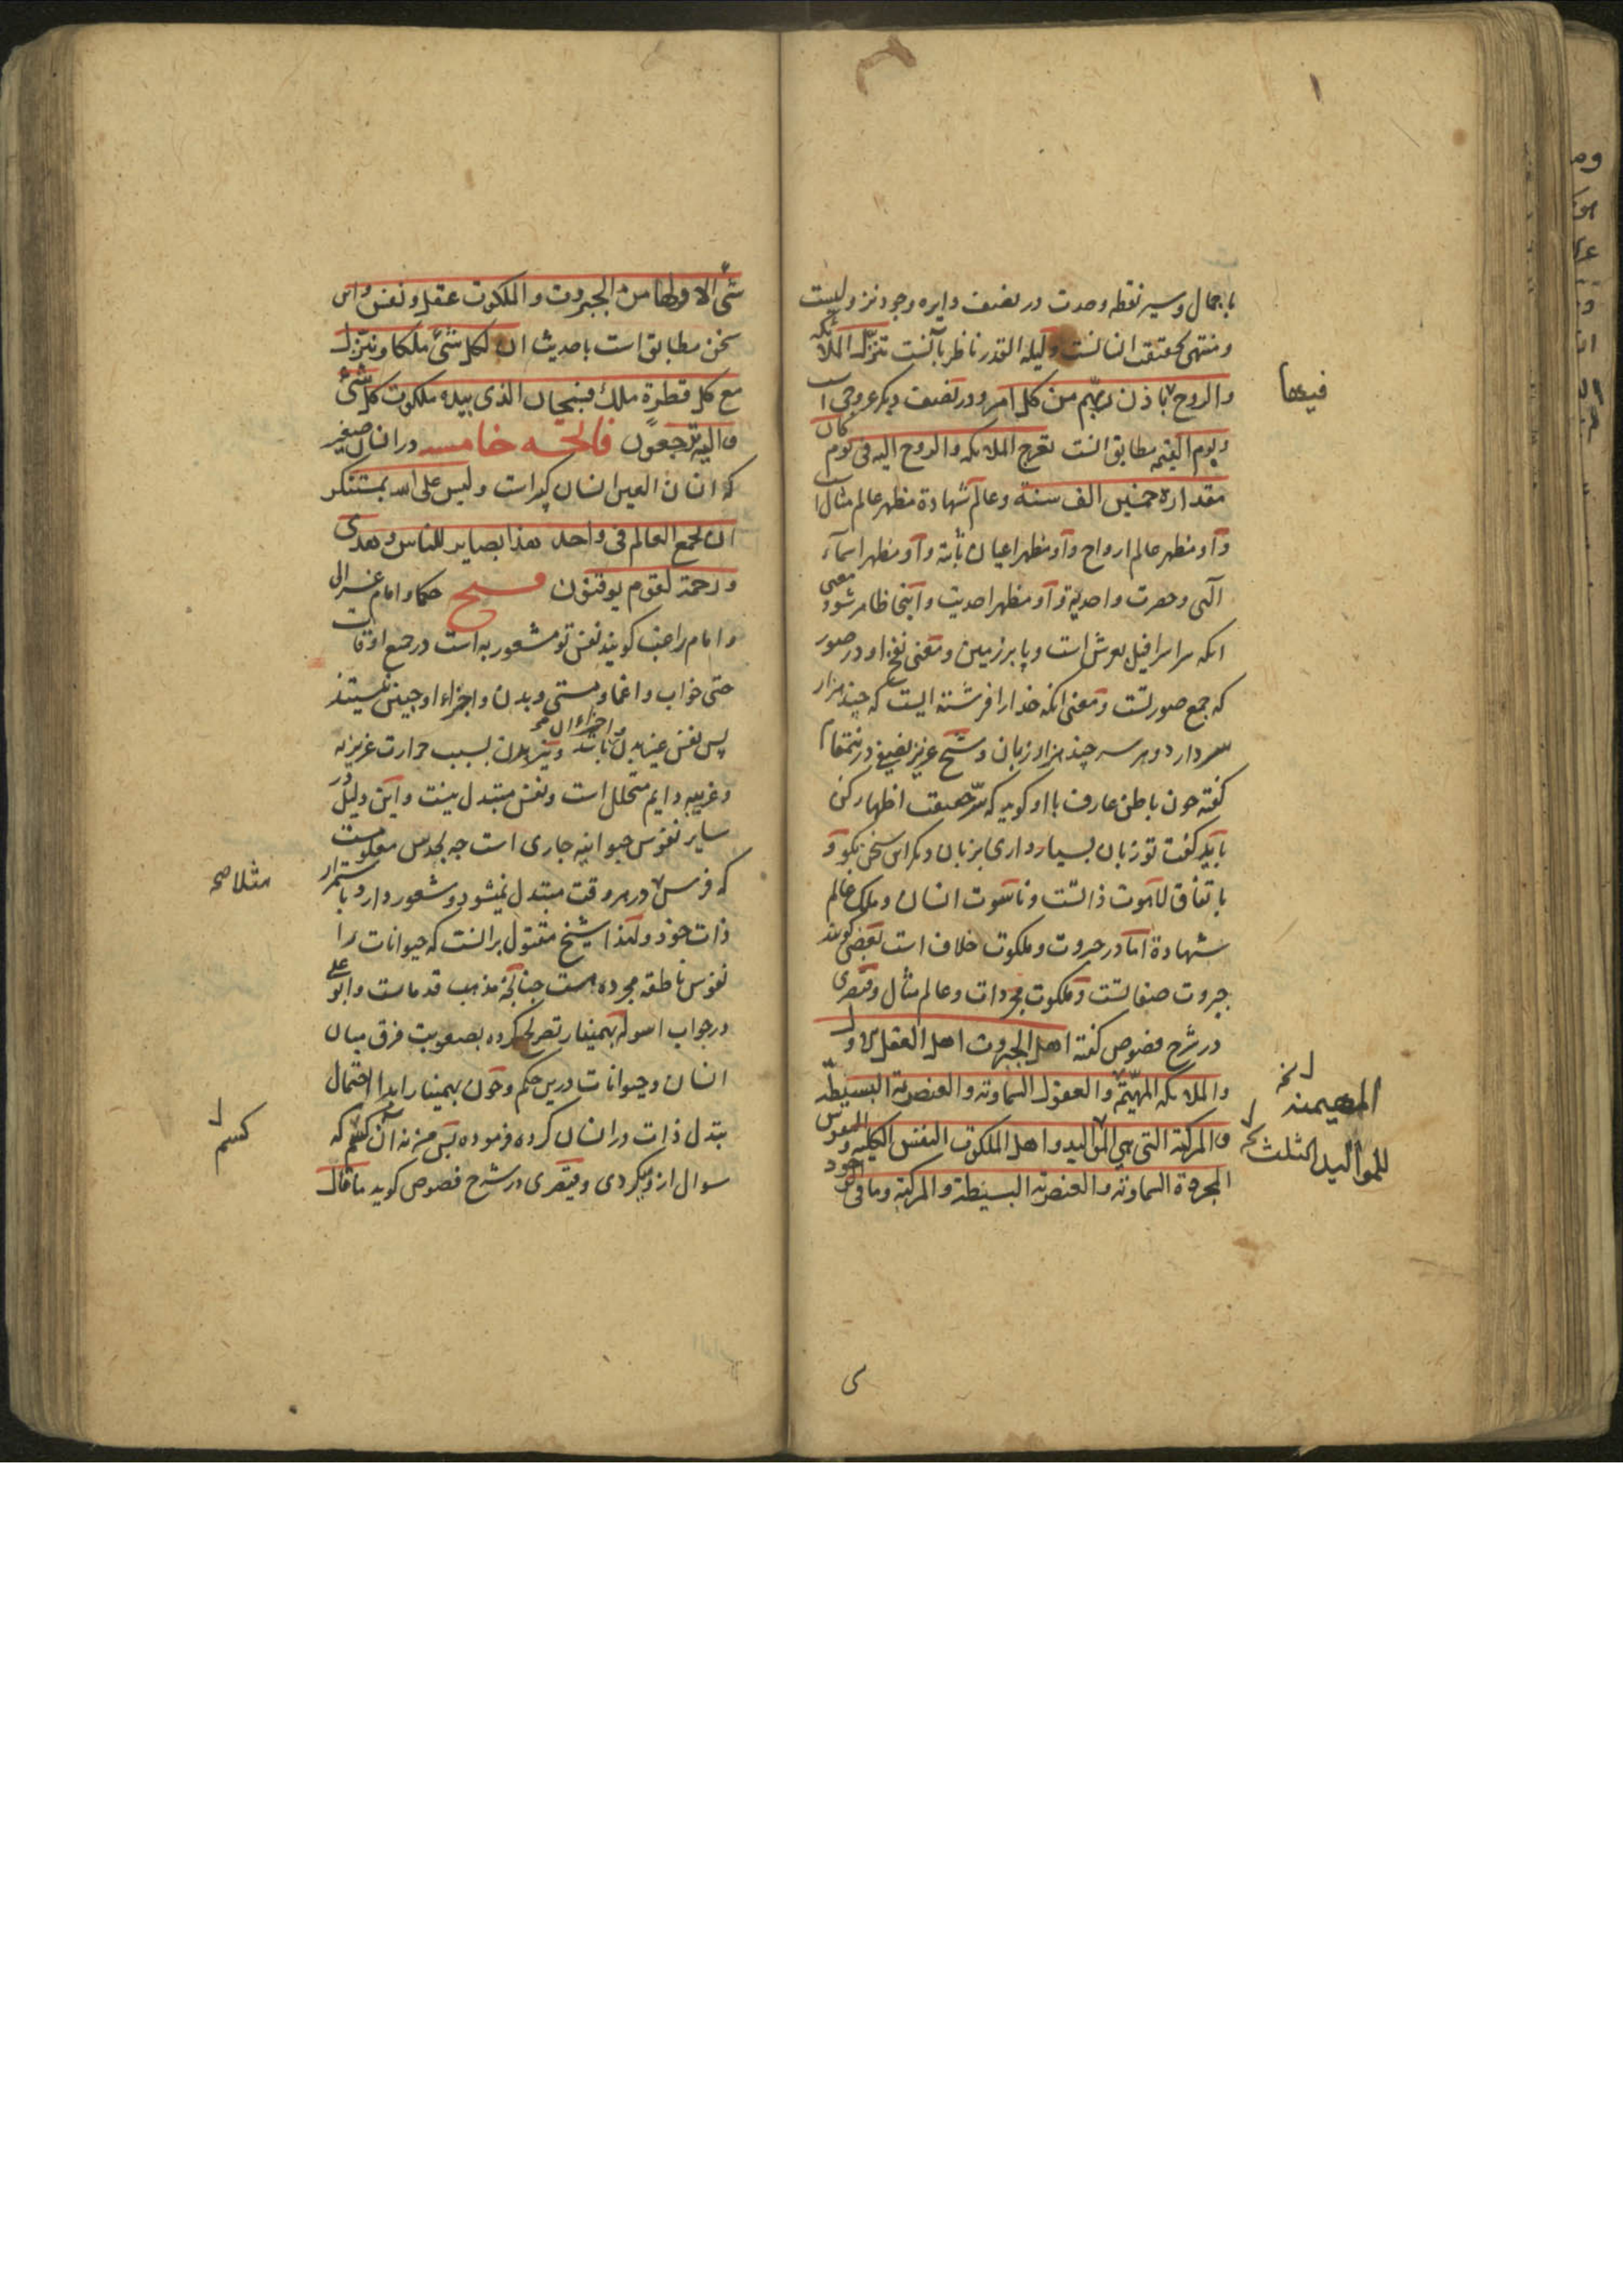 باجمال و سیر نقطه وحدت در نصف دایره وجود نزولیست
و منتهی بحقیقت انسانست و لیله القدر ناظر بآنست تنزل الملائکه
والروح باذن ربهم من کل امر و در نصف دیکر عروجی است
فیها
و یوم القیمه مطابق انست تعرج الملائکه والروح الیه فی یوم کان
مقداره خمسین الف سنة و عالم شهادة مظهر عالم مثال است
و او مظهر عالم ارواح و او مظهر اعیان ثابته و او مظهر اسماء
الهی و حضرت واحدیة و او مظهر احدیت و اینجا ظاهر شود معنی
انکه سر اسرافیل بعرش است و پا بر زمین و معنی نفخ او در صور
که جمع صورتست و معنی انکه خدا را فرشته ایست که چند هزار
سر دارد و هر سر چند هزار زبان و شیخ عزیز نسفی درینمقام
کفته چون باطن عارف با او کوید که سر حقیقت اظهار کن
باید کفت تو زبان بسیار داری بزبان دیکر این سخن بکو و
باتفاق لاهوت ذاتست و ناسوت انسان و ملک عالم
شهادة اما در جبروت و ملکوت خلاف است بعضی کویند
جبروت صفاتست و ملکوت مجردات و عالم مثال و قیصری
در شرح فصوص کفته اهل الجبروت اهل العقل الاول
والملائکه المهیمة والعقول السماویه والعنصریة البسیطة
المهیمنه
والمرکبة التی هی الموالید و اهل الملکوت النفس الکلیه و النفوس
للموالید الثلث
المجردة السماویه والعنصریه البسیطة والمرکبة و ما فی الوجود
شئ الا ولها من الجبروت والملکوت عقل و نفس و این
سخن مطابق است باحدیث ان لکل شئ ملکا و ینزل
مع کل قطرة ملک فسبحان الذی بیده ملکوت کل شئ
والیه ترجعون فاتحه خامسه در انسان صغیر
که انسان العین انسان کبیر است و لیس علی الله بمستنکر
ان یجمع العالم فی واحد هذا بصایر للناس و هدی
و رحمة لقوم یوقنون فتح حکما و امام غزالی
و امام راغب کویند نفس تو مشعور به است در جمیع اوقات
حتی خواب و اغما و مستی و بدن و اجزاء او چنین نیستند
پس نفس عین بدن و اجزاء آن نباشد و نیز بدن بسبب حرارت غریزیه
و غریبه دایم متحلل است و نفس متبدل نیست و این دلیل در
سایر نفوس حیوانیه جاری است چه بحدس معلومست
که فرس در هر وقت متبدل نمیشود و شعور دارد باستمرار
مثلا صح
ذات خود و لهذا شیخ مقتول برانست که حیوانات را
نفوس ناطقه مجرده هست چنانچه مذهب قدماست و ابو علی
در جواب اسوله بهمنیار تصریح کرده بصعوبت فرق میان
انسان و حیوانات درین حکم و چون بهمنیار ابدا احتمال
تبدل ذات در انسان کرده فرموده پس من نه آن کسم که
کسم
سوال ازو میکردی و قیصری در شرح فصوص کوید ما قال